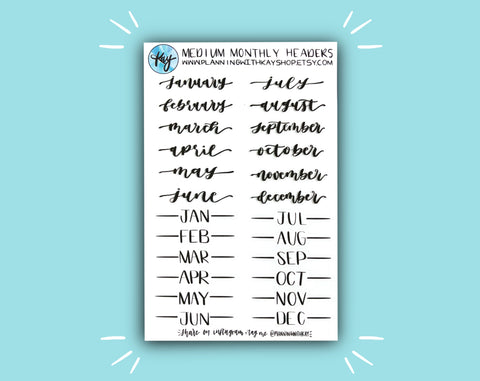 Kay
MEDIUM MONTHLY HEADERS
WWW.PLANNINGWITHKAYSHOP.ETSY.COM
january july
february august
march september
april october
may november
june december
JAN JUL
FEB AUG
MAR SEP
APR OCT
MAY NOV
JUN DEC
share on instagram + tag me @PLANNINGWITHKAY